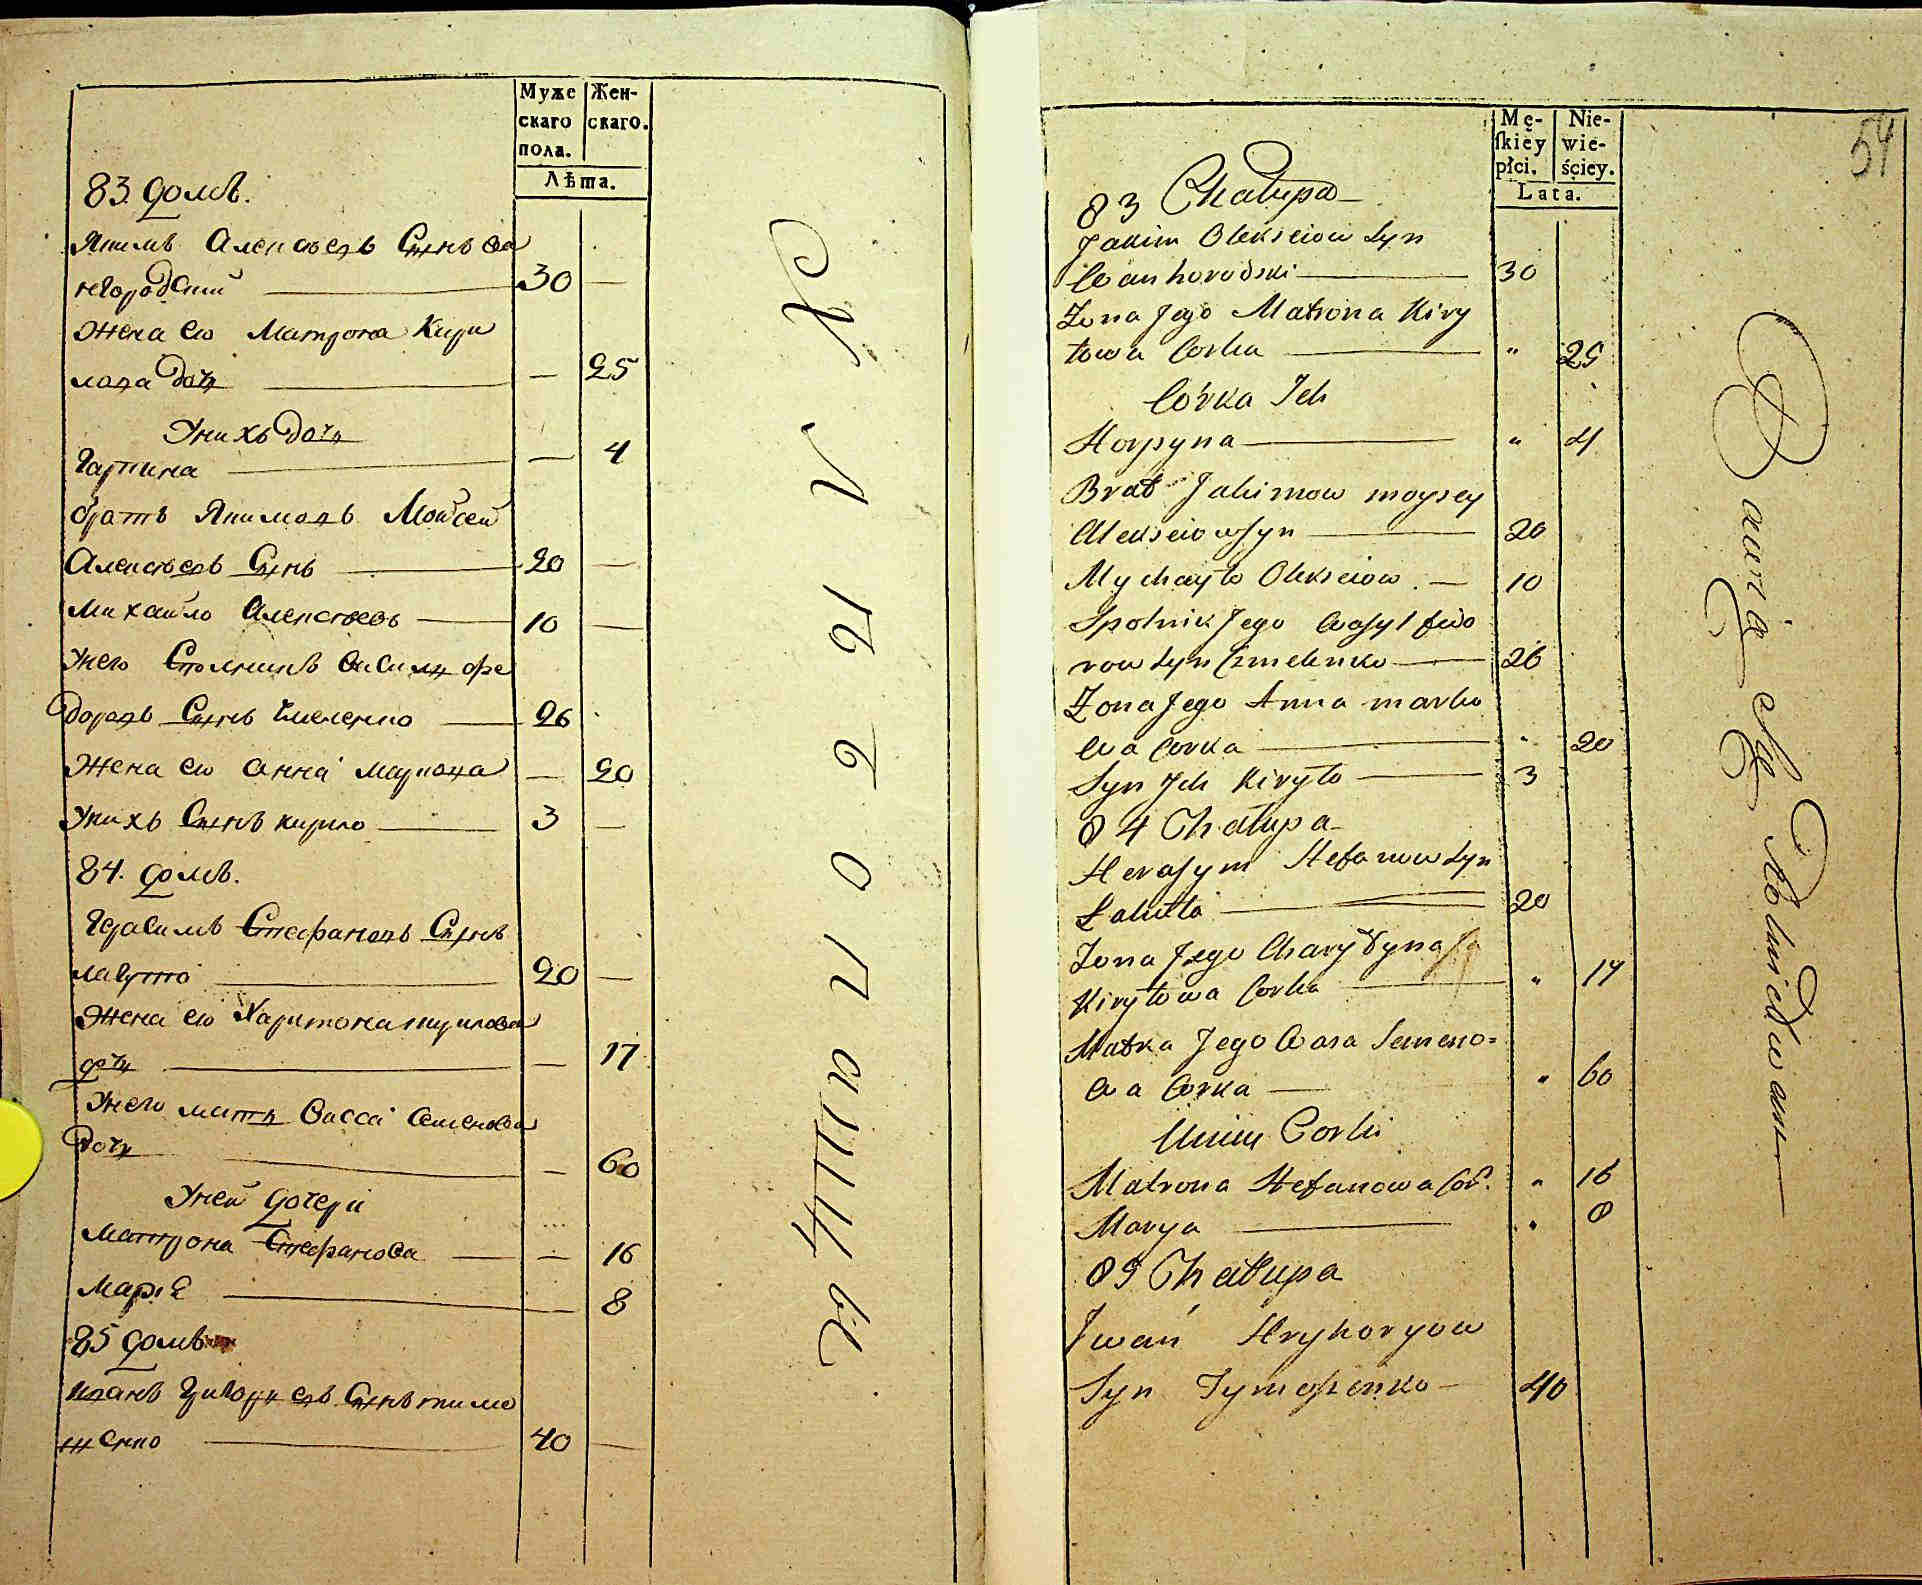 Муже
скаго
пола.
Жен-
скаго.
Лѣта.
83. домъ.
Якимъ Алексѣевъ Сынъ Ва
нгородский 30 —
Жена его Матрона Кири
лова дочь — 25
У нихъ дочь
Гарпина — 4
братъ Якимовъ Мойсей
Алексѣевъ Сынъ 20 —
Михайло Алексѣевъ 10 —
У него Столникъ Василь Фе
доровъ Сынъ Чмеленко 26
Жена его Анна Маркова — 20
У нихъ Сынъ Кирило 3 —
84. домъ.
Герасимъ Стефановъ Сынъ
Лакуто 20 —
Жена его Харитона Кирилова
дочь — 17
У него мать Васса Семенова
дочь — 60
У ней дочери
Матрона Стефанова — — 16
Маріе 8
85 домъ
Иванъ Григориевъ Сынъ тимо
шенко 40 —
хлѣбопашцы
54
Mę-
skiey
płci.
Nie-
wie-
ściey.
Lata.
83 Chałupa
Jakim Olekseiow Syn
Wanhorodski 30
Zona Jego Matrona Kiry
łowa Corka " 25
Córka Ich
Horpyna " 4
Brat Jakimow moysey
Alekseiow syn 20
Mychayło Olekseiow — 10
Spolnik Jego Wasyl fedo
row Syn Czmelenko 26
Zona Jego Anna marko
wa Corka " 20
Syn Ich Kiryło 3
84 Chałupa
Herasym Stefanow Syn
Łakuta 20
Zona Jego Charytyna
Kiryłowa Corka " 17
Matka Jego Wasa Semeno=
wa Corka — " 60
Uniey Corki
Matrona Stefanowa Cor. " 16
Marya " 8
85 Chałupa
Jwan Hryhoryow
Syn Tymoszenko — 40
Bawią się Rolnictwem